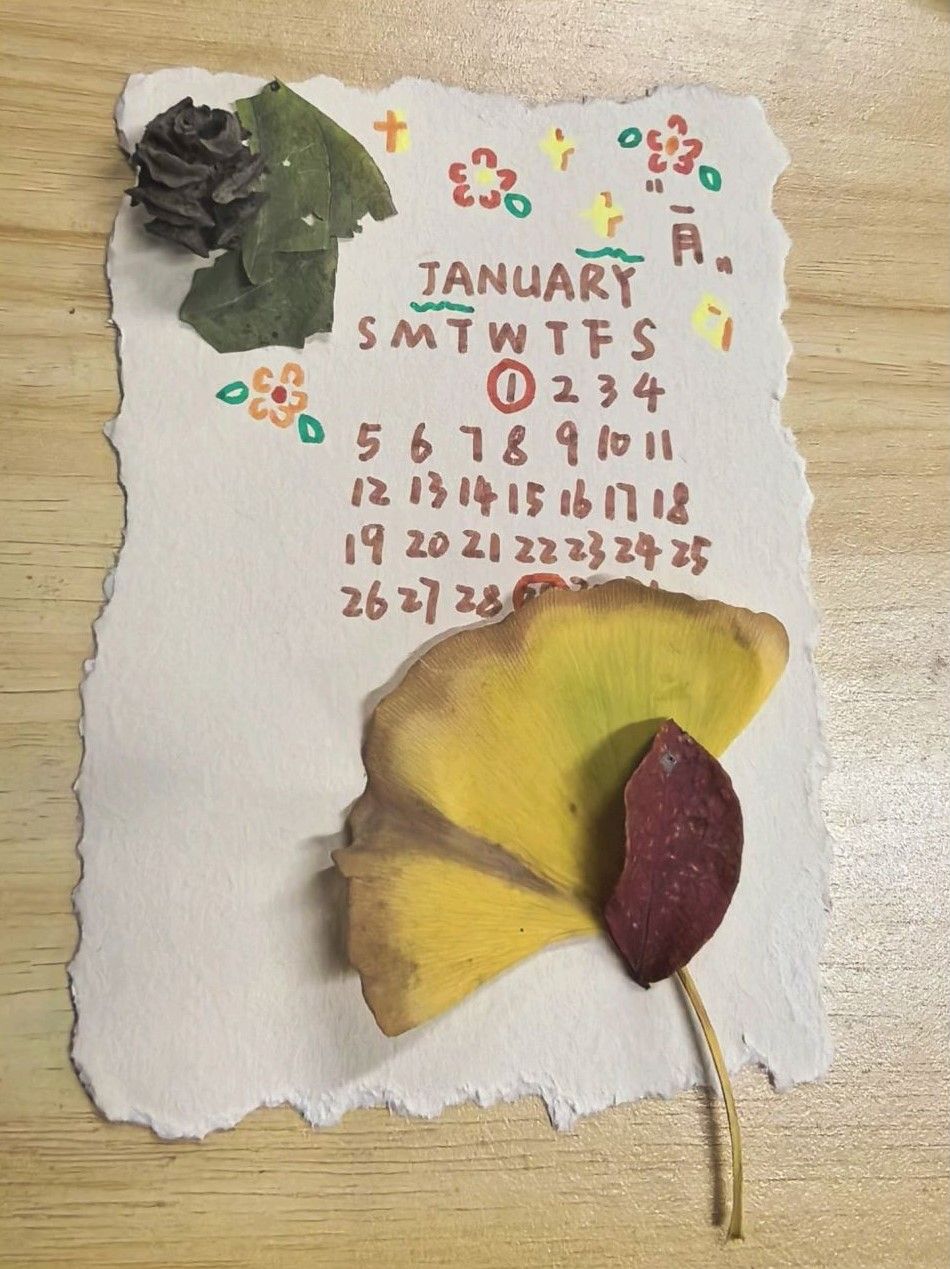 "一月"
JANUARY
S M T W T F S
1 2 3 4
5 6 7 8 9 10 11
12 13 14 15 16 17 18
19 20 21 22 23 24 25
26 27 28